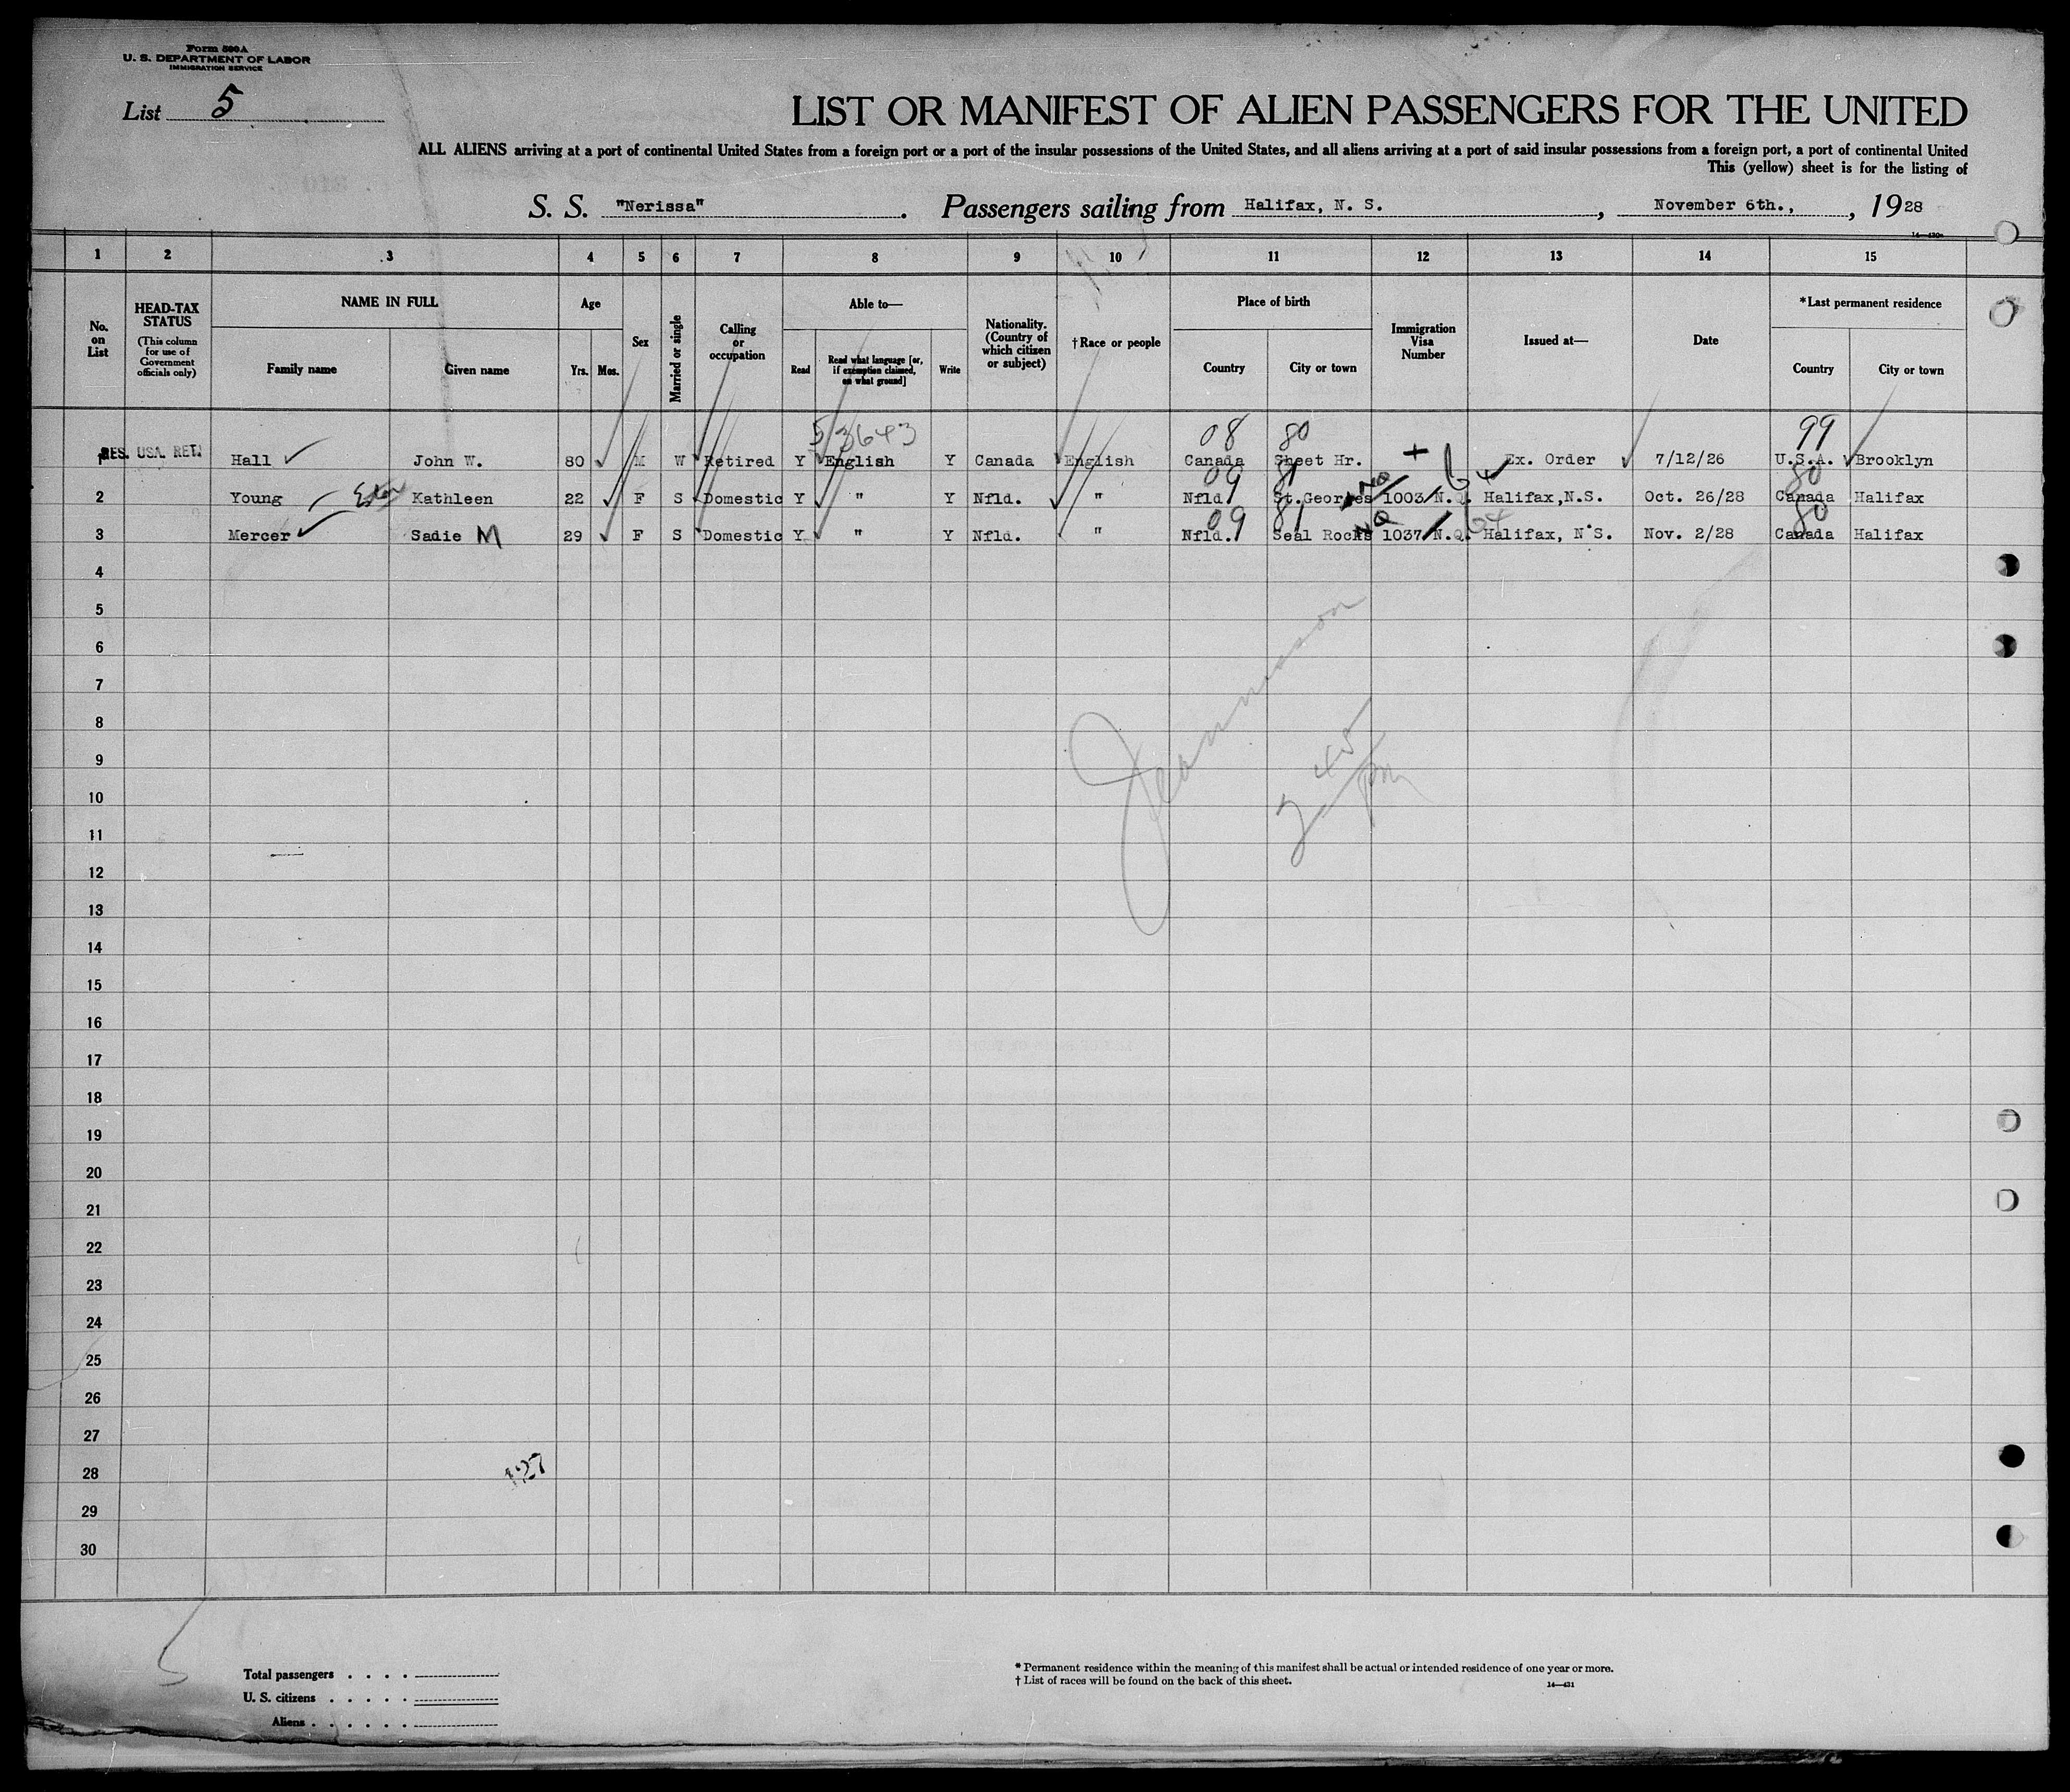 Form 500 A
U. S. DEPARTMENT OF LABOR
IMMIGRATION SERVICE
List 5
LIST OR MANIFEST OF ALIEN PASSENGERS FOR THE UNITED
ALL ALIENS arriving at a port of continental United States from a foreign port or a port of the insular possessions of the United States, and all aliens arriving at a port of said insular possessions from a foreign port, a port of continental United
This (yellow) sheet is for the listing of
S. S. "Nerissa" . Passengers sailing from Halifax, N. S. , November 6th., , 1928
1 2 3 4 5 6 7 8 9 10 11 12 13 14 15
No. on List
HEAD-TAX STATUS (This column for use of Government officials only)
NAME IN FULL
Family name Given name
Age
Yrs. Mos.
Sex
Married or single
Calling or occupation
Able to—
Read Read what language [or, if exemption claimed, on what ground] Write
Nationality. (Country of which citizen or subject)
†Race or people
Place of birth
Country City or town
Immigration Visa Number
Issued at—
Date
*Last permanent residence
Country City or town
53643 08 80 99
1 RES. USA. RET. Hall John W. 80 M W Retired Y English Y Canada English Canada Sheet Hr. Ex. Order 7/12/26 U.S.A. Brooklyn
09 81 NQ 80
2 Young Kathleen 22 F S Domestic Y " Y Nfld. " Nfld. St.Georges 1003 N.Q. Halifax,N.S. Oct. 26/28 Canada Halifax
09 81 NQ 64 80
3 Mercer Sadie M 29 F S Domestic Y " Y Nfld. " Nfld. Seal Rocks 1037 N.Q. Halifax, N.S. Nov. 2/28 Canada Halifax
4
5
6
7
8
9
10
11
12
13
14
15
16
17
18
19
20
21
22
23
24
25
26
27
28
29
30
2 45 pm
127
Total passengers . . . .
U. S. citizens . . . . .
Aliens . . . . . .
* Permanent residence within the meaning of this manifest shall be actual or intended residence of one year or more.
† List of races will be found on the back of this sheet.
14—431